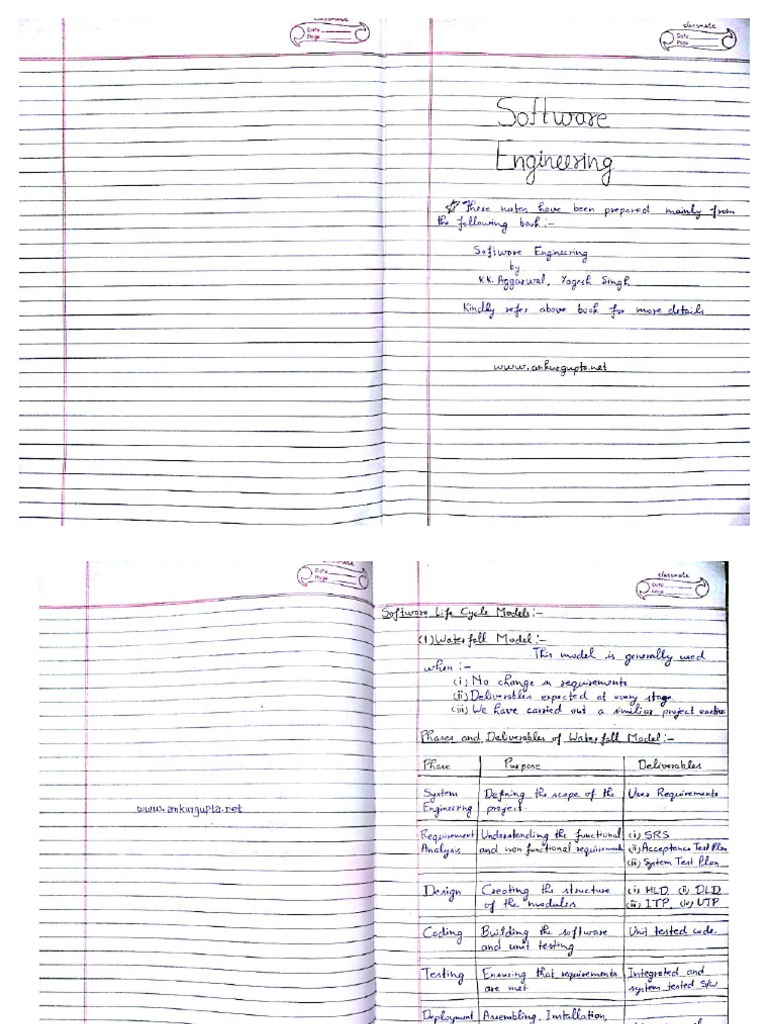 classmate
Date
Page
classmate
Date
Page
Software
Engineering
These notes have been prepared mainly from
the following book:-
Software Engineering
by
K.K. Aggarwal, Yogesh Singh
Kindly refer above book for more details
www.ankurgupta.net
classmate
Date
Page
classmate
Date
Page
www.ankurgupta.net
Software Life Cycle Models:-
(1) Waterfall Model:-
This model is generally used
when:-
(i) No change in requirements
(ii) Deliverables expected at every stage
(iii) We have carried out a similiar project earlier
Phases and Deliverables of Waterfall Model:-
Phase Purpose Deliverables
System Defining the scope of the User Requirements
Engineering project.
Requirement Understanding the functional (i) SRS
Analysis and non functional requirements (ii) Acceptance Test Plan
(iii) System Test Plan
Design Creating the structure (i) HLD (ii) DLD
of the modules (iii) ITP, (iv) UTP
Coding Building the software Unit tested code.
and unit testing
Testing Ensuring that requirements Integrated and
are met system tested S/W
Deployment Assembling, Installation,